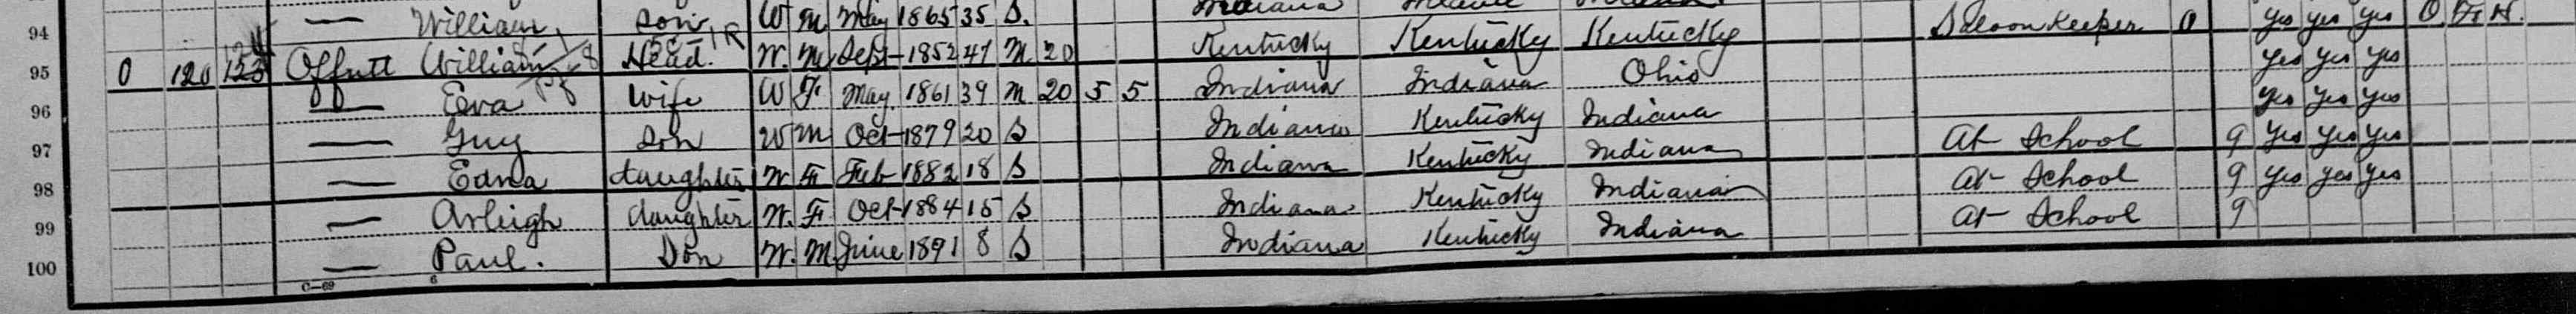 94 — William Son W M May 1865 35 S. Indiana
95 0 120 123 Offutt William Head. 1R W. M Sept 1852 47 M 20 Kentucky Kentucky Kentucky Saloon Keeper 0 yes yes yes O F H.
96 — Eva Wife W F May 1861 39 M 20 5 5 Indiana Indiana Ohio yes yes yes
97 — Guy Son W M Oct 1879 20 S Indiana Kentucky Indiana yes yes yes
98 — Edna daughter W F Feb 1882 18 S Indiana Kentucky Indiana At School 9 yes yes yes
99 — Arleigh daughter W. F Oct 1884 15 S Indiana Kentucky Indiana at School 9 yes yes yes
100 — Paul. Son W. M June 1891 8 S Indiana Kentucky Indiana at School 9
C—69 6